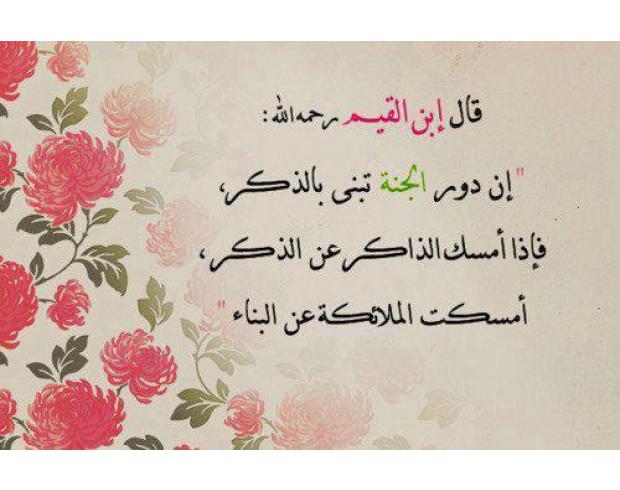 قال إبن القيم رحمه الله :
"إن دور الجنة تبنى بالذكر،
فإذا أمسك الذاكر عن الذكر،
أمسكت الملائكة عن البناء"